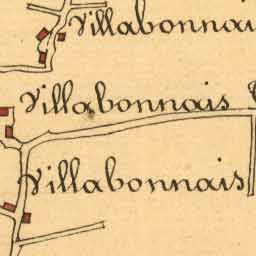 Villabonnai
Villabonnais
Villabonnais